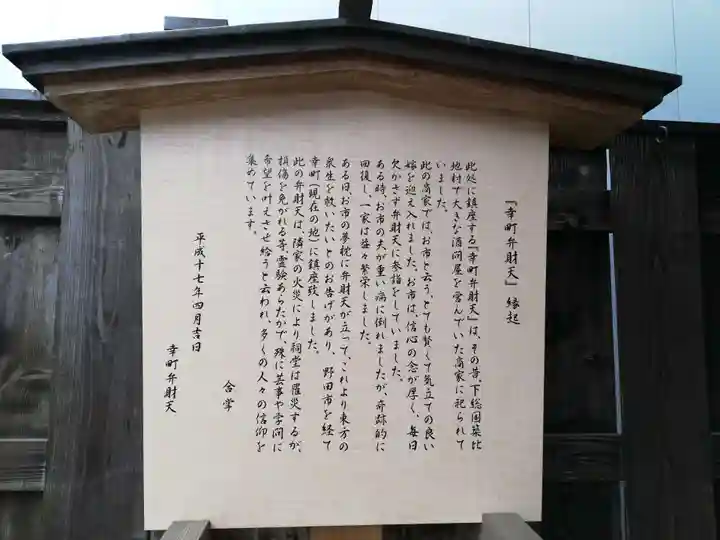 『幸町弁財天』縁起
此処に鎮座する『幸町弁財天』は、その昔下総国築比
地村で大きな酒問屋を営んでいた商家に祀られて
いました。
此の商家では、お市と云う、とても賢くて気立ての良い
嫁を迎え入れました。お市は、信心の念が厚く、毎日
欠かさず弁財天に参詣をしていました。
ある時、お市の夫が重い病に倒れましたが、奇跡的に
回復し、一家は益々繁栄しました。
ある日お市の夢枕に弁財天が立って、これより東方の
衆生を救いたいとのお告げがあり、野田市を経て
幸町(現在の地)に鎮座致しました。
此の弁財天は、隣家の火災により祠堂は罹災するが、
損傷を免がれる等、霊験あらたかで、殊に芸事や学問に
希望を叶えさせ給うと云われ、多くの人々の信仰を
集めています。
平成十七年四月吉日
合掌
幸町弁財天